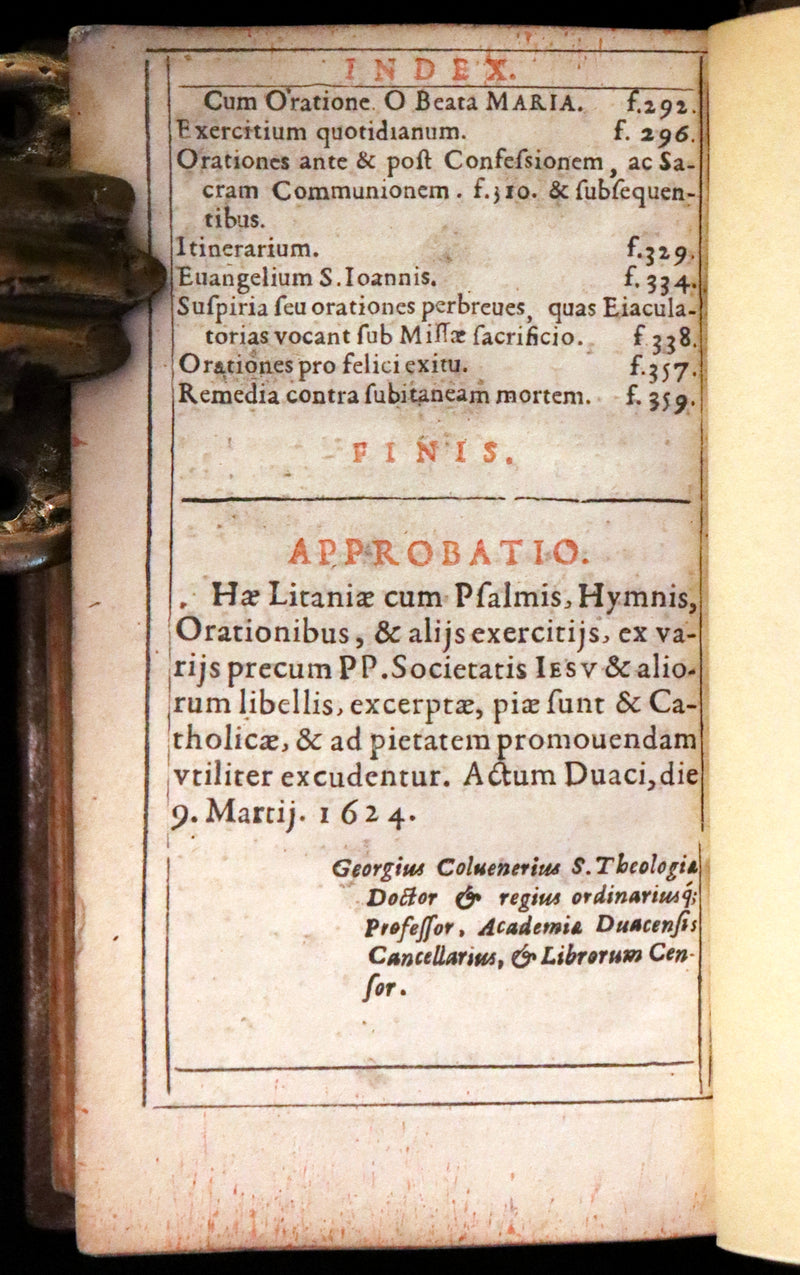 INDEX.
Cum Oratione O Beata MARIA. f.292.
Exercitium quotidianum. f. 296.
Orationes ante & poſt Confeſsionem, ac Sa-
cram Communionem. f.310. & ſubſequen-
tibus.
Itinerarium. f.329.
Euangelium S.Ioannis. f. 334.
Suſpiria ſeu orationes perbreues, quas Eiacula-
torias vocant ſub Miſſæ ſacrificio. f 338.
Orationes pro felici exitu. f.357.
Remedia contra ſubitaneam mortem. f. 359.
FINIS.
APPROBATIO.
Hæ Litaniæ cum Pſalmis, Hymnis,
Orationibus, & alijs exercitijs, ex va-
rijs precum PP. Societatis IESV & alio-
rum libellis, excerptæ, piæ ſunt & Ca-
tholicæ, & ad pietatem promouendam
vtiliter excudentur. Actum Duaci, die
9. Martij. 1624.
Georgius Coluenerius S. Theologiæ
Doctor & regius ordinariusq́;
Profeſſor, Academiæ Duacenſis
Cancellarius, & Librorum Cen-
ſor.